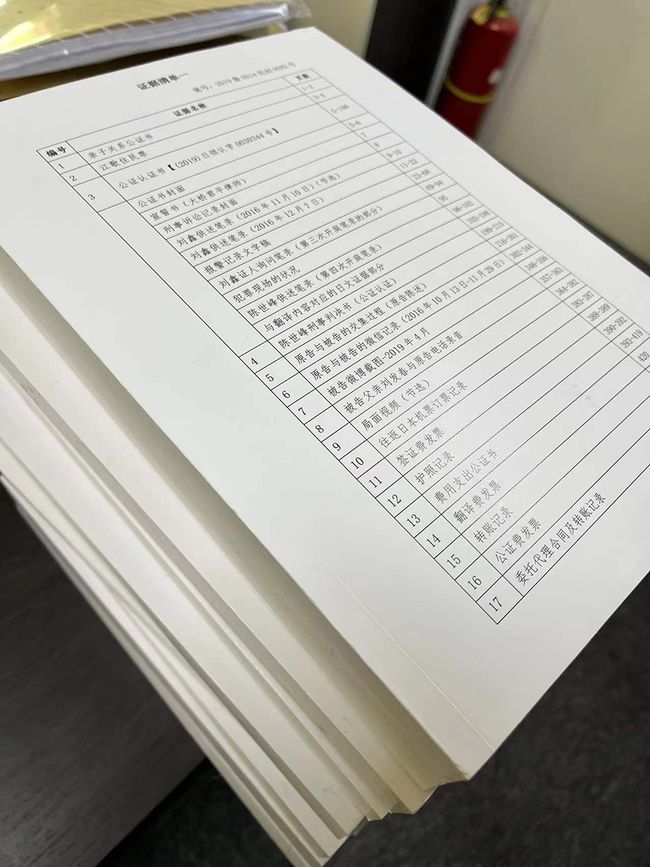 证据清单一
案号：2019 鲁 0214 民初 9592 号
编号 证据名称 页数
1 亲子关系公证书 1-2
2 江歌住民票 3-4
3 公证认证书【(2019)日领认字 0030344 号】 5-198
公证书封面 5-6
宣誓书（大桥君平律师） 7
刑事诉讼记录封面 8
刘鑫供述笔录（2016 年 11 月 10 日）(节选) 9-10
刘鑫供述笔录（2016 年 12 月 7 日） 11-22
报警记录文字稿 23-68
刘鑫证人询问笔录（第三次开庭笔录） 69-94
犯罪现场的状况 95
陈世峰供述笔录（第四次开庭笔录的部分） 96-102
与翻译内容对应的日文证据部分 103-198
4 陈世峰刑事判决书（公证认证） 199-215
5 原告与被告的交集过程（原告陈述） 216-301
6 原告与被告的微信记录（2016 年 10 月 13 日-11 月 29 日） 302-344
7 被告微博截图-2019 年 4 月
8 被告父亲刘发春与原告电话录音 357-363
9 局面视频（节选） 364-382
10 往返日本机票订票记录 383-387
11 签证费发票 388-389
12 护照记录 390-392
13 费用支出公证书 393-419
14 翻译费发票 420
15 转账记录
16 公证费发票
17 委托代理合同及转账记录